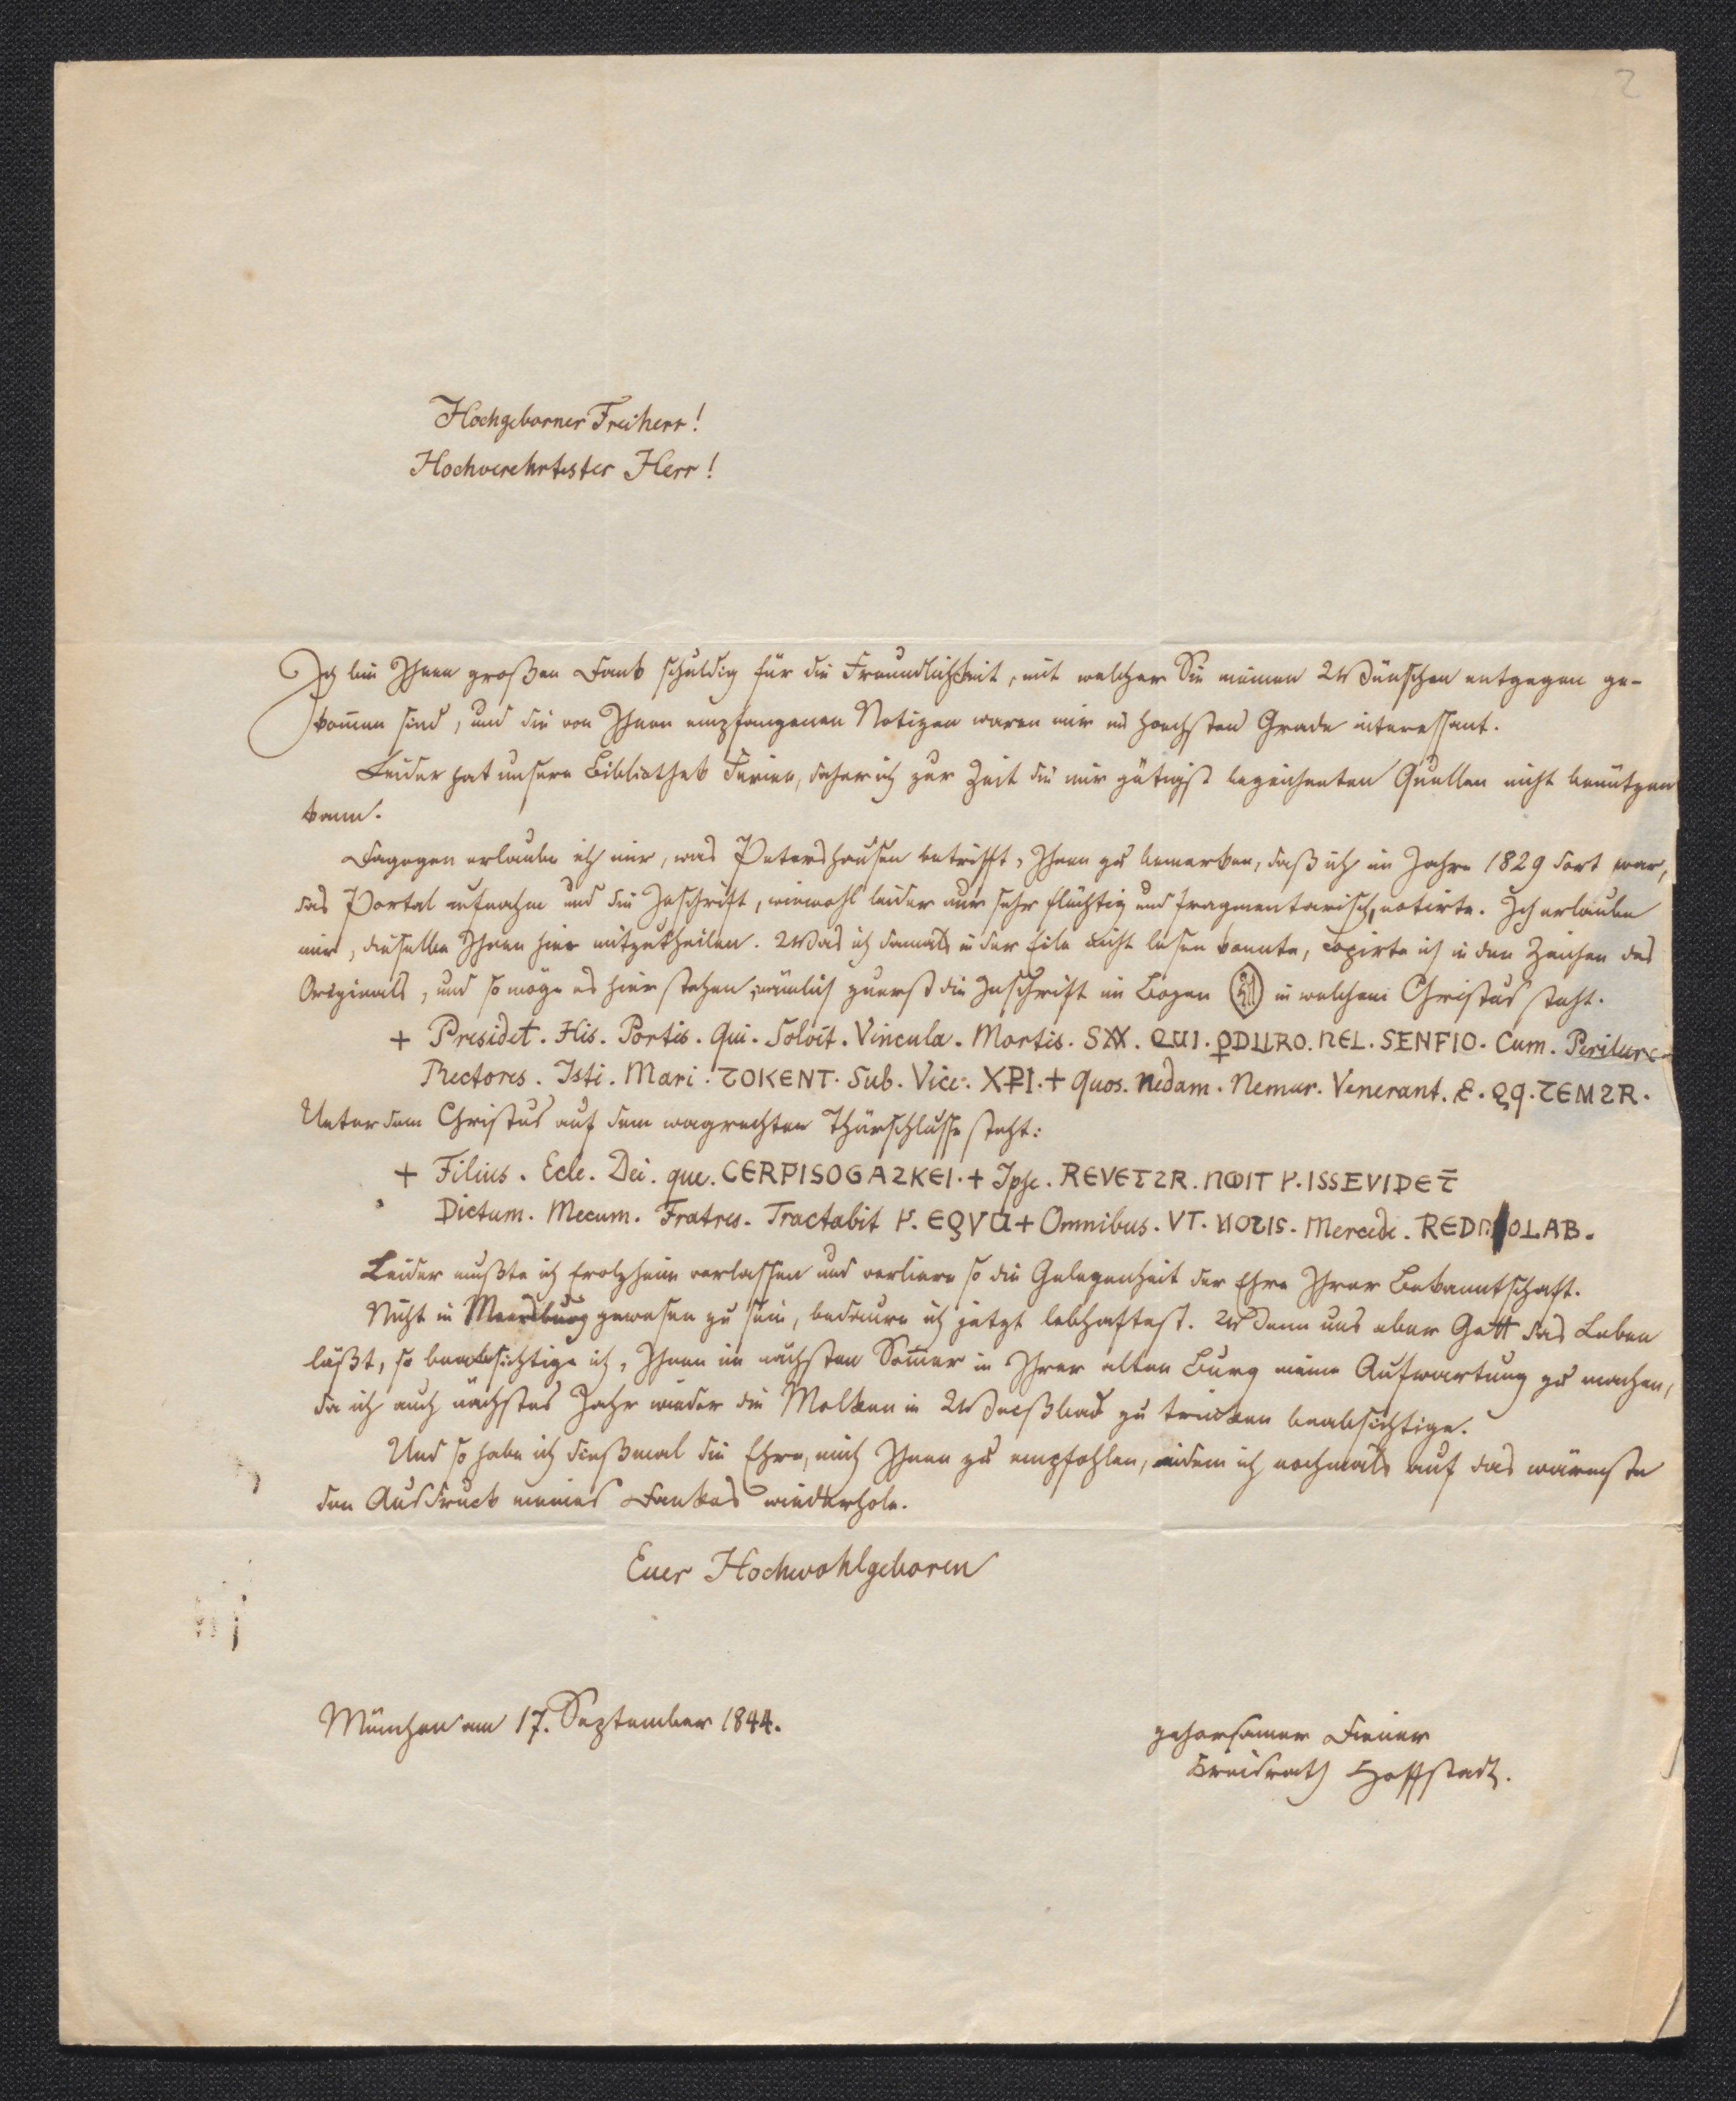 2
Hochgeborner Freiherr!
Hochverehrtester Herr!
Ich bin Ihnen großen Dank schuldig für die Freundlichkeit, mit welcher Sie meinen Wünschen entgegen ge-
kom̄en sind, und die von Ihnen empfangenen Notizen waren mir im hoechsten Grade interessant.
Leider hat unsere Bibliothek Ferien, daher ich zur Zeit die mir gütigst bezeichneten Quellen nicht benützen
kann.
Dagegen erlaube ich mir, was Petershausen betrifft, Ihnen zu bemerken, daß ich im Jahre 1829 dort war,
das Portal aufnahm und die Inschrift, wiewohl leider nur sehr flüchtig und fragmentarisch, notirte. Ich erlaube
mir, dieselbe Ihnen hier mitzutheilen. Was ich damals in der Eile nicht lesen konnte, copirte ich in den Zeichen des
Originals, und so möge es hier stehen, nämlich zuerst die Inschrift im Bogen in welchem Christus steht.
+ Presidet. His. Portis. Qui. Soloit. Vincula. Mortis. SXX. QUI. PDURO. NEL. SENFIO. Cum. Periture
Rectores. Isti. Mari. TOKENT. Sub. Vice. XPI. + Quos. Nedam. Nemur. Venerant. E. QQ. TEM2R.
Unter dem Christus auf dem wagrechten Thürschlusse steht:
+ Filius. Ecle. Dei. que. CERPISOGA2KEI. + Ipse. REVET2R. NOIT P. ISSEVIDET̄
Dictum. Mecum. Fratres. Tractabit P. EQVA + Omnibus. VT. NOTIS. Mercede. REDNOLAB.
Leider mußte ich Erolzheim verlassen und verliere so die Gelegenheit der Ehre Ihrer Bekanntschaft.
Nicht in Meersburg gewesen zu sein, bedaure ich jetzt lebhaftest. Wenn uns aber Gott das Leben
läßt, so beabsichtige ich, Ihnen im nächsten Som̄er in Ihrer alten Burg meine Aufwartung zu machen,
da ich auch nächstes Jahr wieder die Molken in Weißbad zu trinken beabsichtige.
Und so habe ich dießmal die Ehre, mich Ihnen zu empfehlen, indem ich nochmals auf das wärmste
den Ausdruck meines Dankes wiederhole.
Euer Hochwohlgeboren
München am 17. September 1844.
gehorsamer Diener
Kreisrath Hoffstadt.